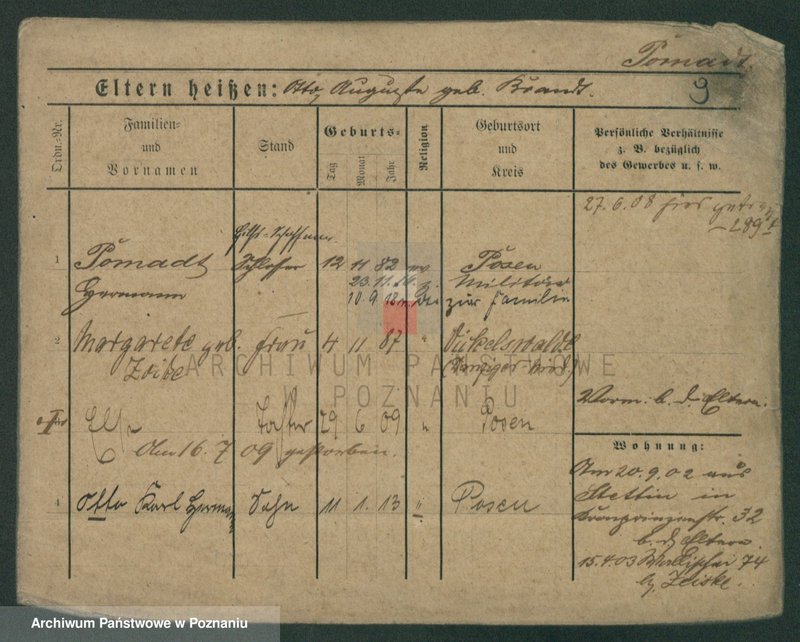 Pomadt.
Eltern heißen: Otto, Auguste geb. Brandt.
9
Ordn.-Nr.
Familien- und Vornamen
Stand
Geburts-
Tag
Monat
Jahr
Religion
Geburtsort und Kreis
Persönliche Verhältnisse z. B. bezüglich des Gewerbes u. s. w.
27.6.08 hier
289
1
Pomadt
Hermann
Schlosser
12 11 82
Posen
23.11.14
Militär
10 9 18
zur Familie
2
Margarete geb.
Frau
4 11 87
"
Zeibe
Vorm. b. d. Eltern.
Else
Tochter
29 6 09
"
Posen
Am 16.7 09 gestorben.
4
Otto Karl Hermann
Sohn
11 1. 13
"
Posen
Wohnung:
Am 20.9.02 aus
Stettin in
Kronprinzenstr. 32
b. d. Eltern.
15.4.03 Wallischei 74
b. Zeiske.
ARCHIWUM PAŃSTWOWE
W POZNANIU
Archiwum Państwowe w Poznaniu